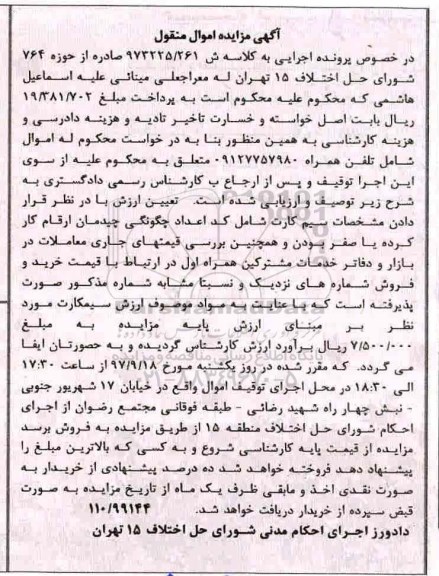 آگهی مزایده اموال منقول
در خصوص پرونده اجرایی به کلاسه ش ۹۷۳۲۲۵/۲۶۱ صادره از حوزه ۷۶۴
شورای حل اختلاف ۱۵ تهران له معراجعلی مینائی علیه اسماعیل
هاشمی که محکوم علیه محکوم است به پرداخت مبلغ ۱۹/۳۸۱/۷۰۲
ریال بابت اصل خواسته و خسارت تاخیر تادیه و هزینه دادرسی و
هزینه کارشناسی به همین منظور بنا به در خواست محکوم له اموال
شامل تلفن همراه ۰۹۱۲۷۷۵۷۹۸۰ متعلق به محکوم علیه از سوی
این اجرا توقیف و پس از ارجاع ب کارشناس رسمی دادگستری به
شرح زیر توصیف و ارزیابی شده است. تعیین ارزش با در نظر قرار
دادن مشخصات سیم کارت شامل کد اعداد چگونگی چیدمان ارقام کار
کرده یا صفر بودن و همچنین بررسی قیمتهای جاری معاملات در
بازار و دفاتر خدمات مشترکین همراه اول در ارتباط با قیمت خرید و
فروش شماره های نزدیک و نسبتا مشابه شماره مذکور صورت
پذیرفته است که با عنایت به مواد موصوف ارزش سیمکارت مورد
نظر بر مبنای ارزش پایه مزایده به مبلغ
۷/۵۰۰/۰۰۰ ریال برآورد ارزش کارشناس گردیده و به حضورتان ایفا
می گردد. که مقرر شده در روز یکشنبه مورخ ۹۷/۹/۱۸ از ساعت ۱۷:۳۰
الی ۱۸:۳۰ در محل اجرای توقیف اموال واقع در خیابان ۱۷ شهریور جنوبی
- نبش چهار راه شهید رضائی - طبقه فوقانی مجتمع رضوان از اجرای
احکام شورای حل اختلاف منطقه ۱۵ از طریق مزایده به فروش برسد
مزایده از قیمت پایه کارشناسی شروع و به کسی که بالاترین مبلغ را
پیشنهاد دهد فروخته خواهد شد ده درصد پیشنهادی از خریدار به
صورت نقدی اخذ و مابقی ظرف یک ماه از تاریخ مزایده به صورت
قبض سپرده از خریدار دریافت خواهد شد. ۱۱۰/۹۹۱۴۴
دادورز اجرای احکام مدنی شورای حل اختلاف ۱۵ تهران